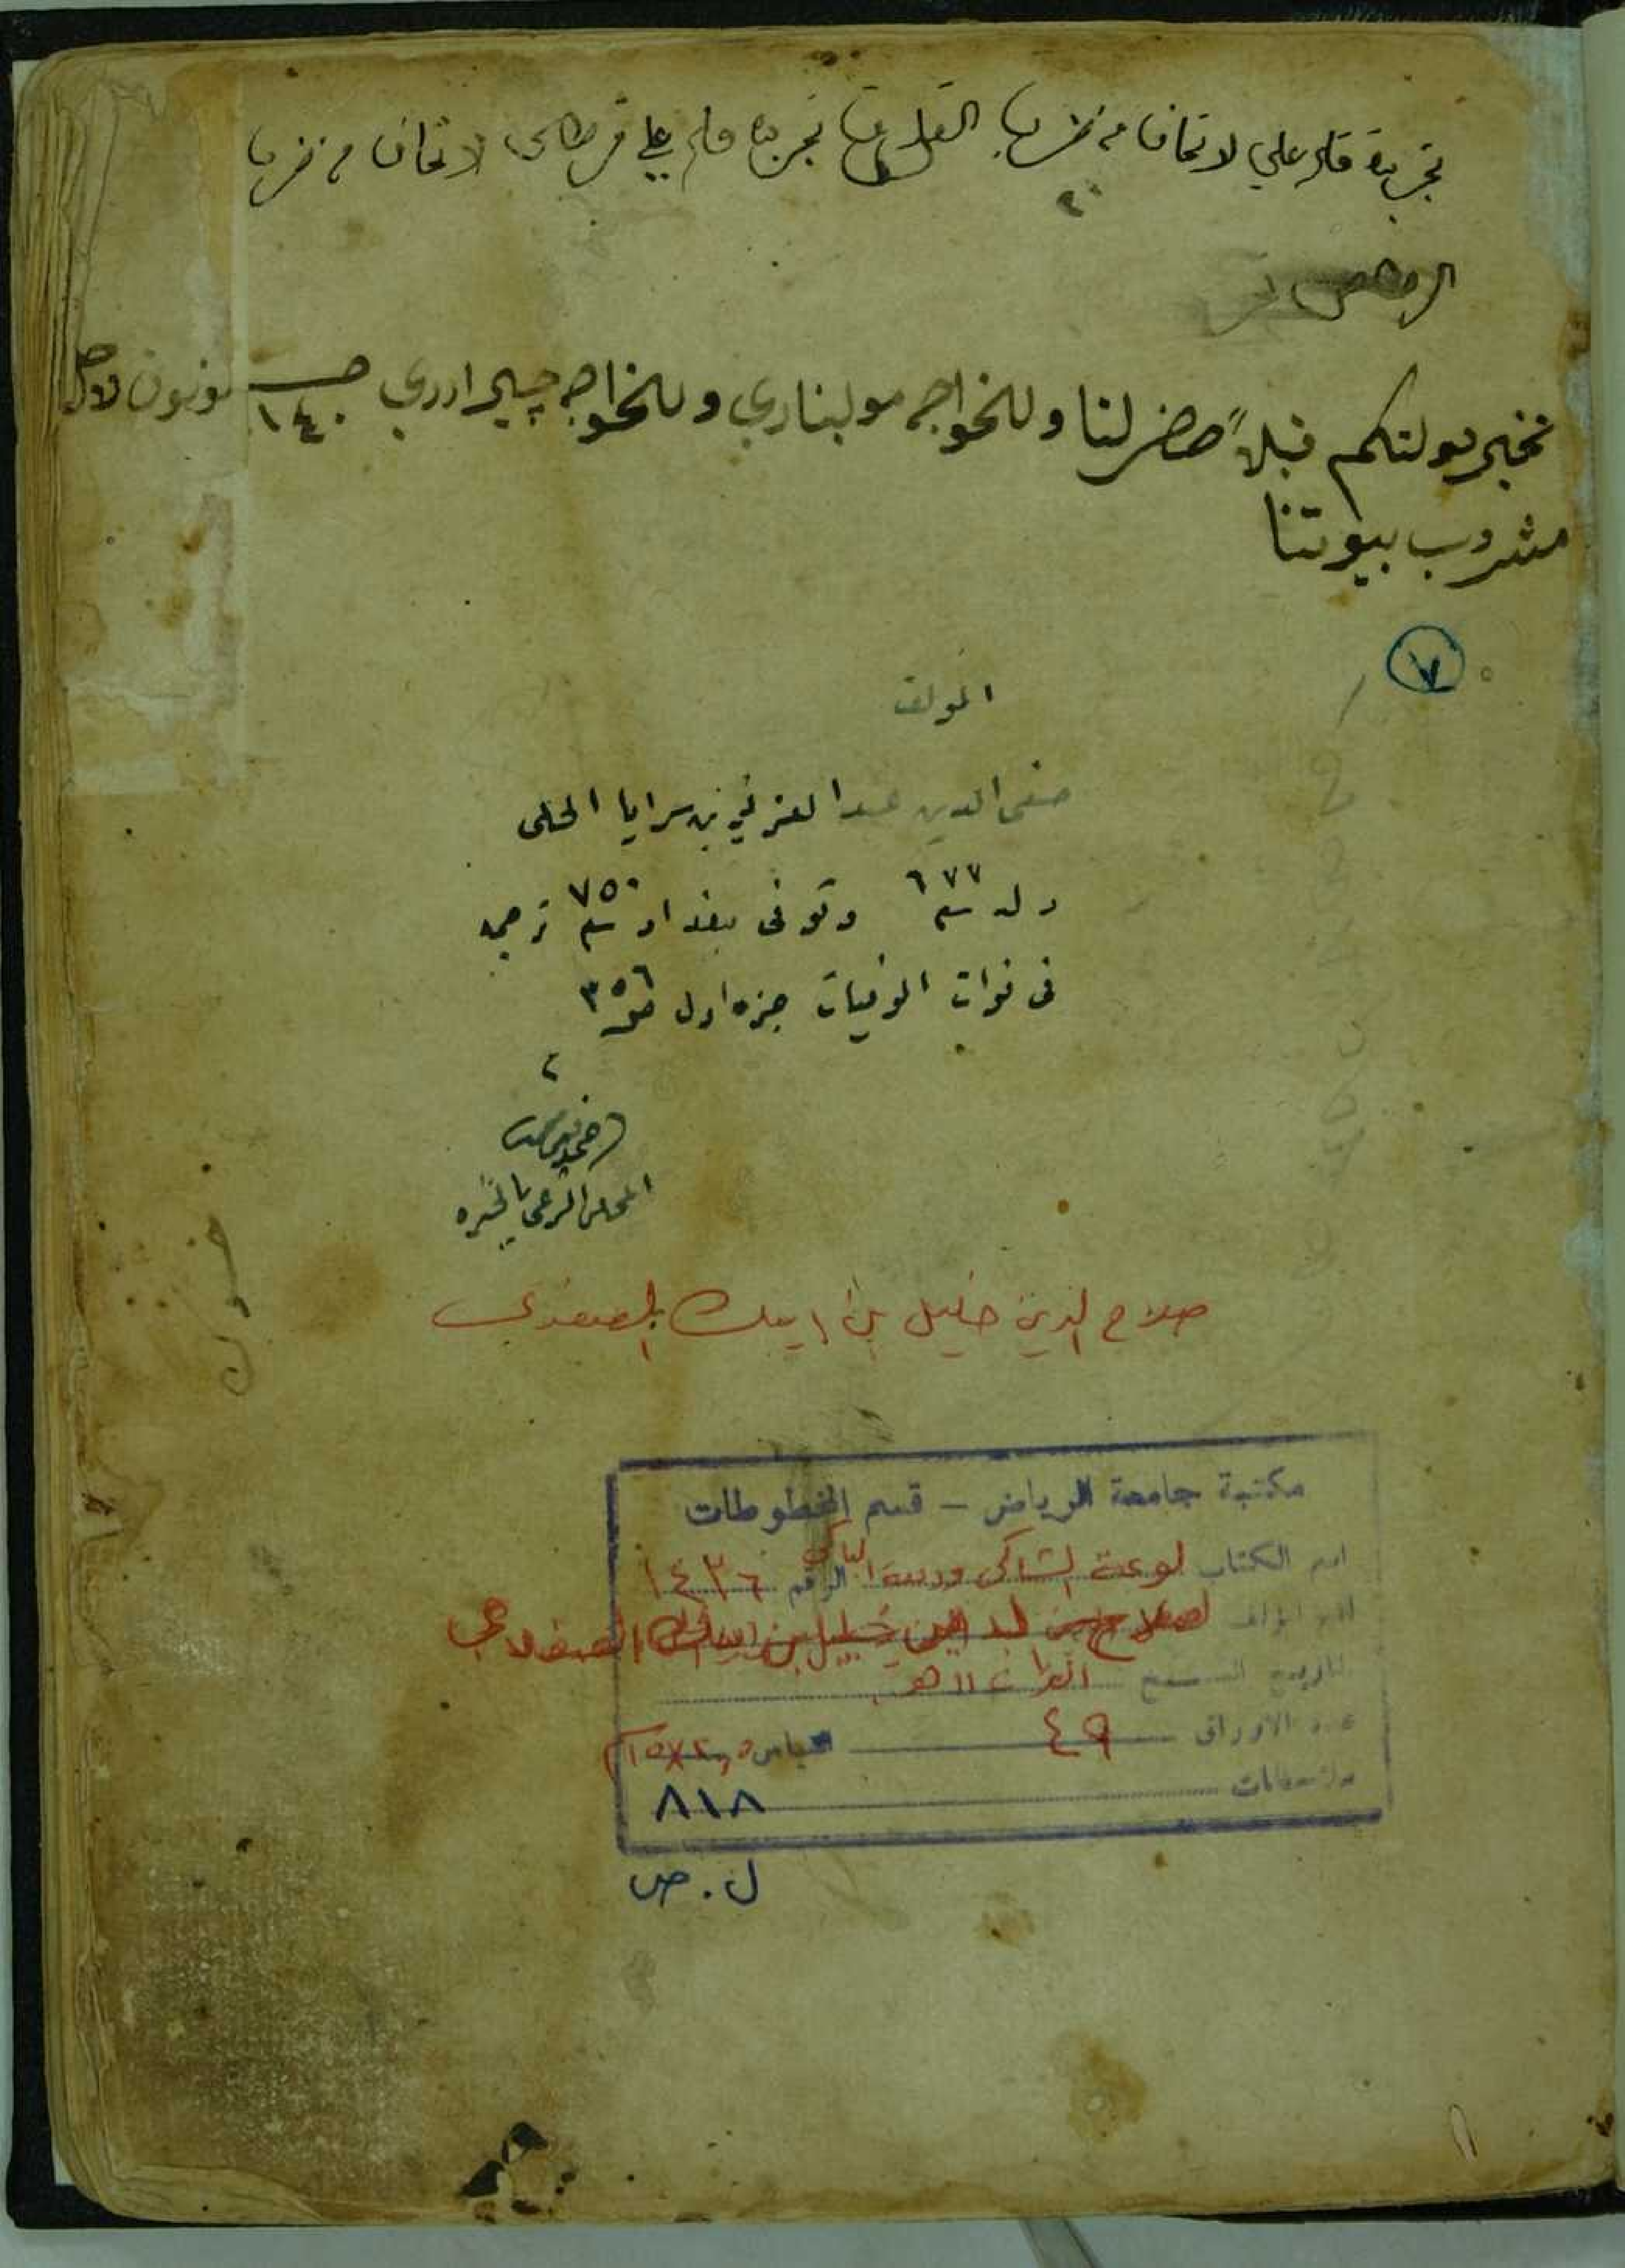 تجربة قلم علي لا تخاف من ضربها تجربة قلم علي قرطاس لا تخاف من ضربها
نخبر دولتكم قبلاً حضر لنا وللخواجه موليناري وللخواجه جيراردي ١٤٠
مشروب بيوتنا
٧
المؤلف
صفى الدين عبد العزيز بن سرايا الحلى
ولد سنة ٦٧٧ وتوفى ببغداد سنة ٧٥٠ ترجمه
فى فوات الوفيات جزء اول ص ٣٥٦
صلاح الدين خليل بن ايبك الصفدي
مكتبة جامعة الرياض - قسم المخطوطات
اسم الكتاب لوعة الشاكى ودمعة الباكى الرقم ١٤٣٦
اسم المؤلف صلاح الدين خليل بن ايبك الصفدي
تاريخ النسخ القرن ١١ هـ
عدد الاوراق ٤٩ القياس
ملاحظات ٨١٨
ل . ص